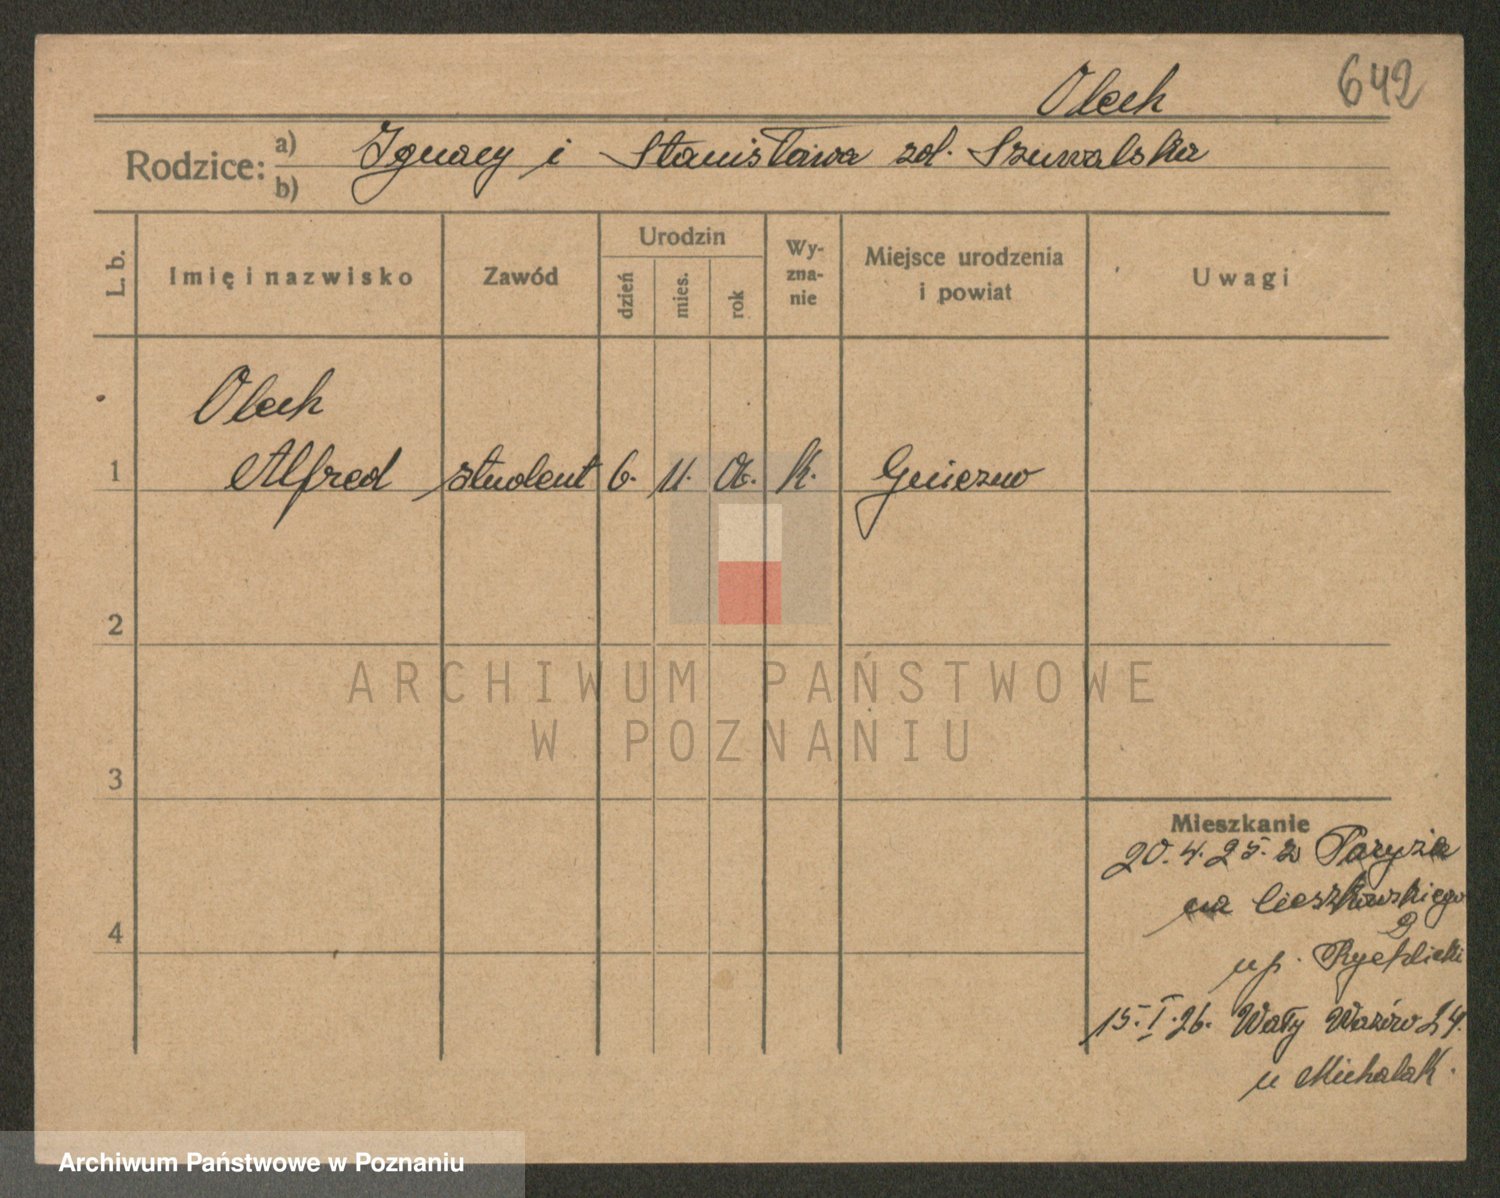 642
Olech
Rodzice: a) Ignacy i Stanisława zd. Szuwalska
b)
L. b. Imię i nazwisko Zawód Urodzin dzień mies. rok Wy-zna-nie Miejsce urodzenia i powiat Uwagi
Olech
1 Alfred student 6. 11. K. Gniezno
2
ARCHIWUM PAŃSTWOWE
W POZNANIU
3
Mieszkanie
20. 4. 25. z Paryża
na Cieszkowskiego
2
4
u p.
15. I. 26. Wały Wazów 24.
u Michalak.
Archiwum Państwowe w Poznaniu